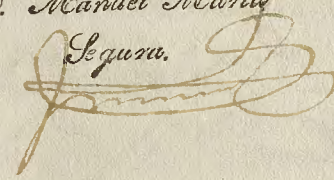 Manuel Maria
Segura.